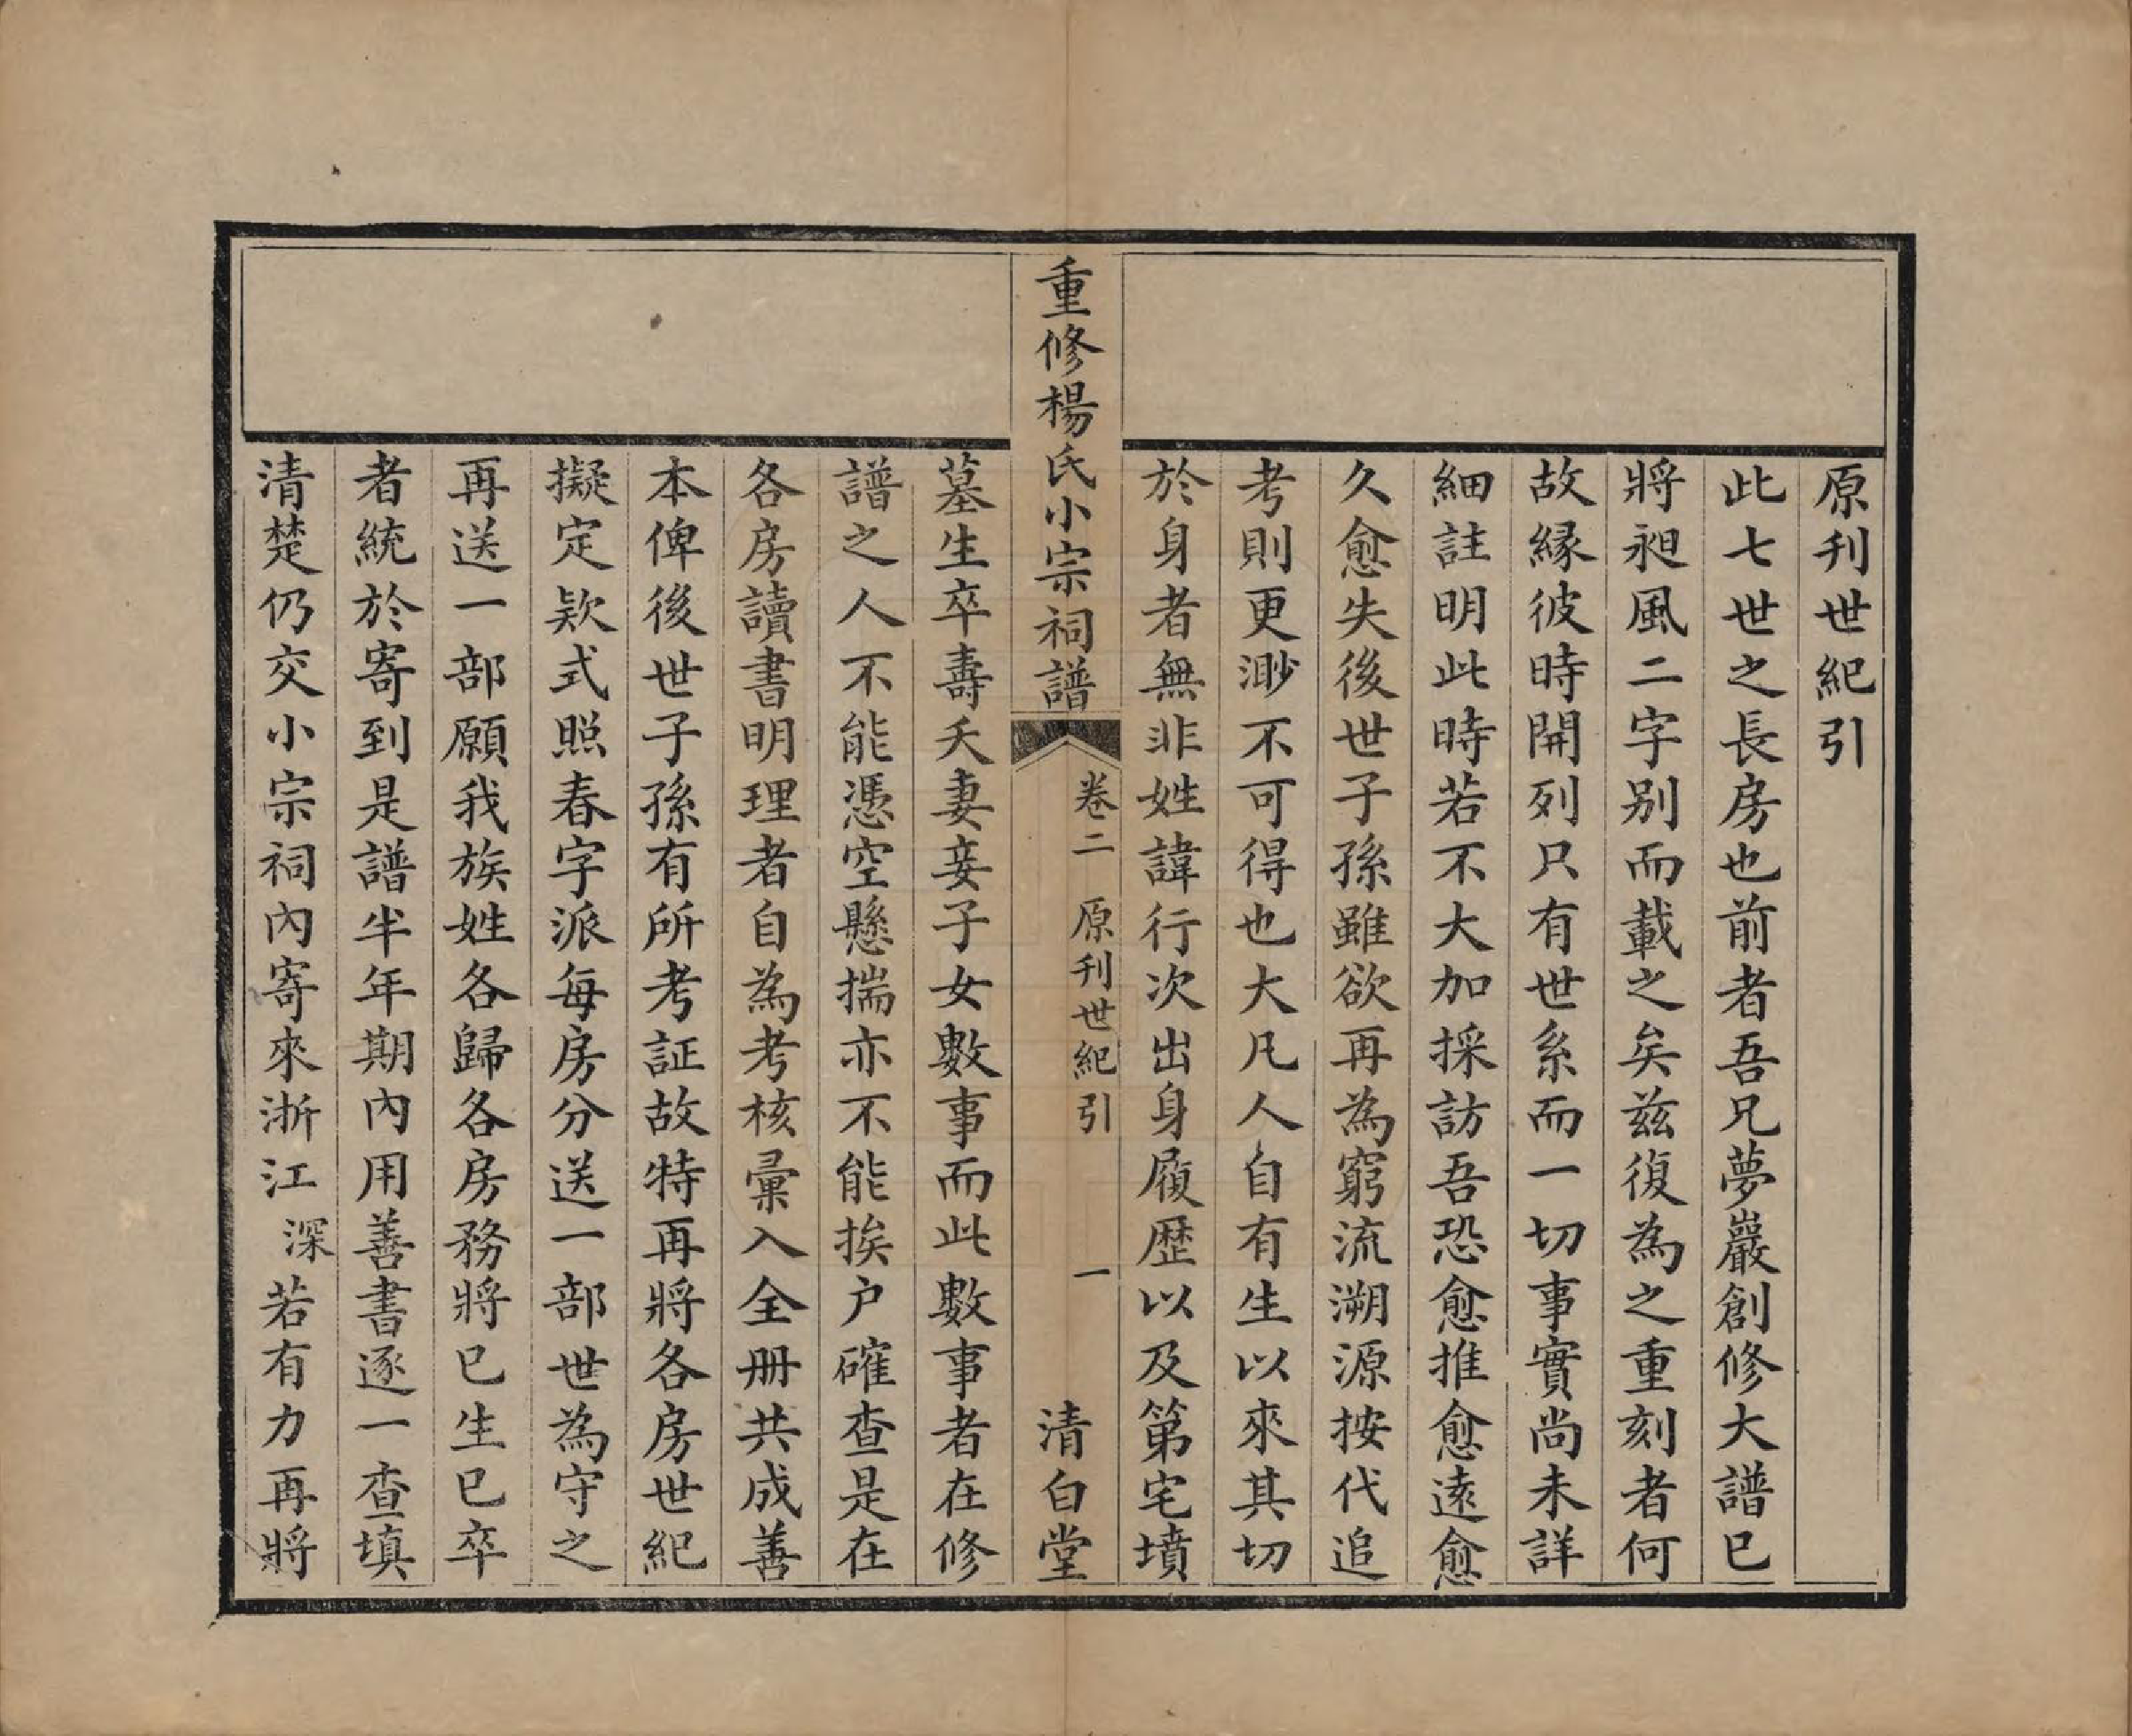 原刊世紀引
此七世之長房也前者吾兄夢巖創修大譜已
將昶風二字别而載之矣兹復為之重刻者何
故緣彼時開列只有世系而一切事實尚未詳
細註明此時若不大加採訪吾恐愈推愈遠愈
久愈失後世子孫雖欲再為窮流溯源按代追
考則更渺不可得也大凡人自有生以來其切
於身者無非姓諱行次出身履歷以及第宅墳
重修楊氏小宗祠譜
卷二 原刊世紀引 一
清白堂
墓生卒壽夭妻妾子女數事而此數事者在修
譜之人不能憑空懸揣亦不能挨户確查是在
各房讀書明理者自為考核彙入全册共成善
本俾後世子孫有所考証故特再將各房世紀
擬定欵式照春字派每房分送一部世為守之
再送一部願我族姓各歸各房務將已生已卒
者統於寄到是譜半年期內用善書逐一查填
清楚仍交小宗祠內寄來浙江深若有力再將